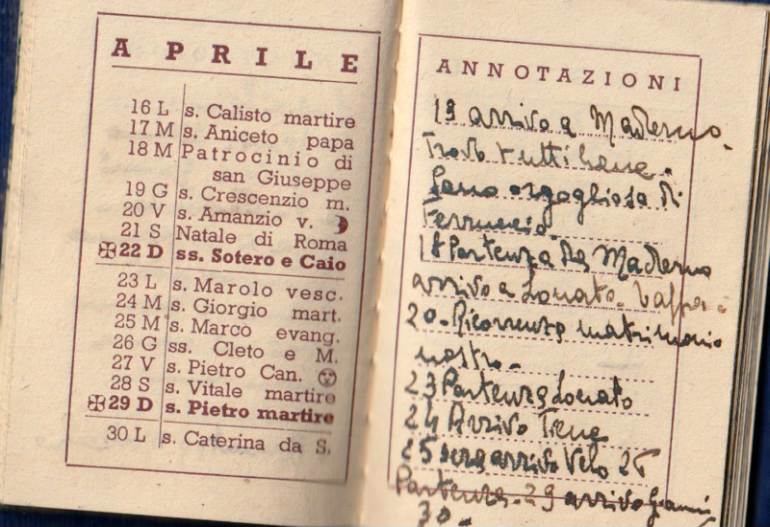 APRILE
16 L s. Calisto martire
17 M s. Aniceto papa
18 M Patrocinio di
san Giuseppe
19 G s. Crescenzio m.
20 V s. Amanzio v.
21 S Natale di Roma
✠22 D ss. Sotero e Caio
23 L s. Marolo vesc.
24 M s. Giorgio mart.
25 M s. Marco evang.
26 G ss. Cleto e M.
27 V s. Pietro Can.
28 S s. Vitale martire
✠29 D s. Pietro martire
30 L s. Caterina da S.
ANNOTAZIONI
13 arrivo a Maderno.
Trovo tutti bene.
Sono orgogliosa di
Ferruccio.
18 Partenza da Maderno
arrivo a Lonato.
20. Ricorrenza matrimonio
nostro.
23 Partenza Lonato
24 Arrivo Tene
25 sera arrivo Velo 26
Partenza. 29 arrivo
30.